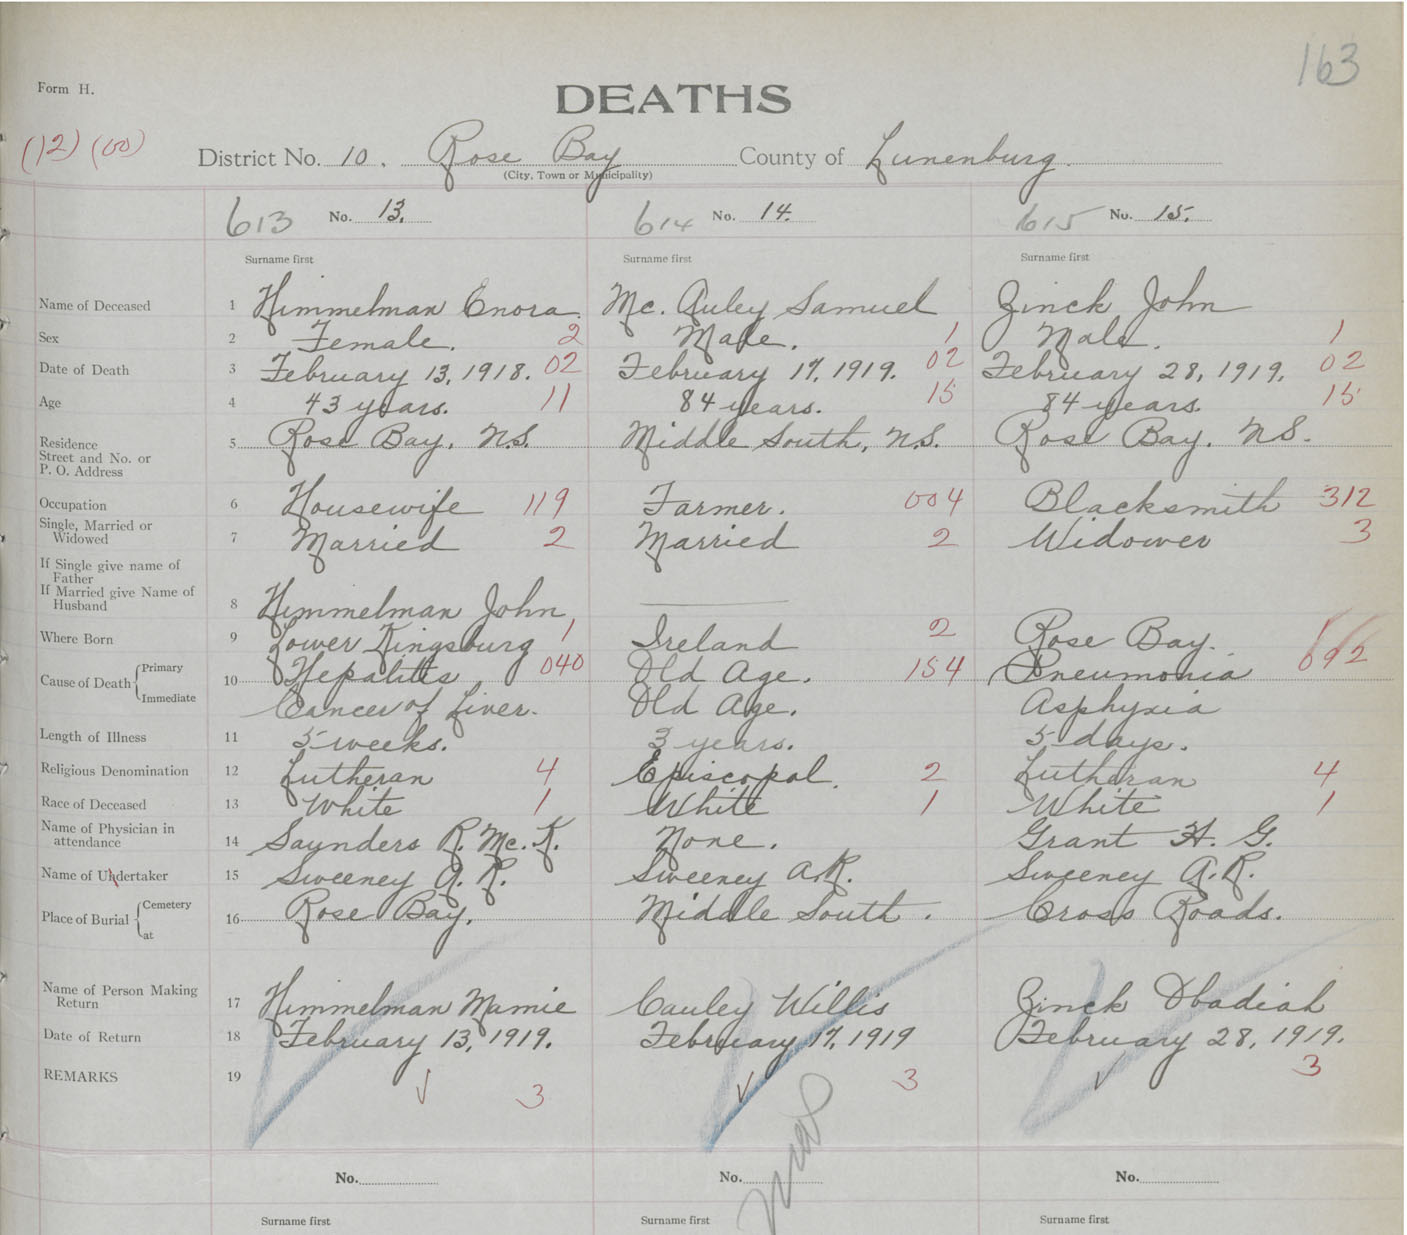 163
Form H.
DEATHS
(12) (00)
District No. 10. Rose Bay County of Lunenburg.
(City, Town or Municipality)
613 No. 13. 614 No. 14. 615 No. 15.
Surname first Surname first Surname first
Name of Deceased 1 Himmelman Enora. Mc. Auley Samuel Zinck John
Sex 2 Female. 2 Male. 1 Male. 1
Date of Death 3 February 13, 1918. 02 February 17, 1919. 02 February 28, 1919. 02
Age 4 43 years. 11 84 years. 15 84 years. 15
Residence
Street and No. or
P. O. Address
5 Rose Bay, N.S. Middle South, N.S. Rose Bay, N.S.
Occupation 6 Housewife 119 Farmer. 004 Blacksmith 312
Single, Married or
Widowed
7 Married 2 Married 2 Widower 3
If Single give name of
Father
If Married give Name of
Husband
8 Himmelman John,
Where Born 9 Lower Kingsburg 1 Ireland 2 Rose Bay. 1
Cause of Death Primary
Immediate
10 Hepalitis 040 Old Age. 154 Pneumonia 092
Cancer of Liver. Old Age. Asphyxia
Length of Illness 11 5 weeks. 3 years. 5 days.
Religious Denomination 12 Lutheran 4 Episcopal. 2 Lutheran 4
Race of Deceased 13 White 1 White 1 White 1
Name of Physician in
attendance
14 Saunders R. Mc. K. None. Grant H. G.
Name of Undertaker 15 Sweeney A. R. Sweeney A.R. Sweeney A.R.
Place of Burial Cemetery
at
16 Rose Bay. Middle South. Cross Roads.
Name of Person Making
Return
17 Himmelman Mamie Cauley Willis Zinck Obadiah
Date of Return 18 February 13, 1919. February 17, 1919 February 28, 1919.
REMARKS 19 3 3 3
No. No. No.
Surname first Surname first Surname first